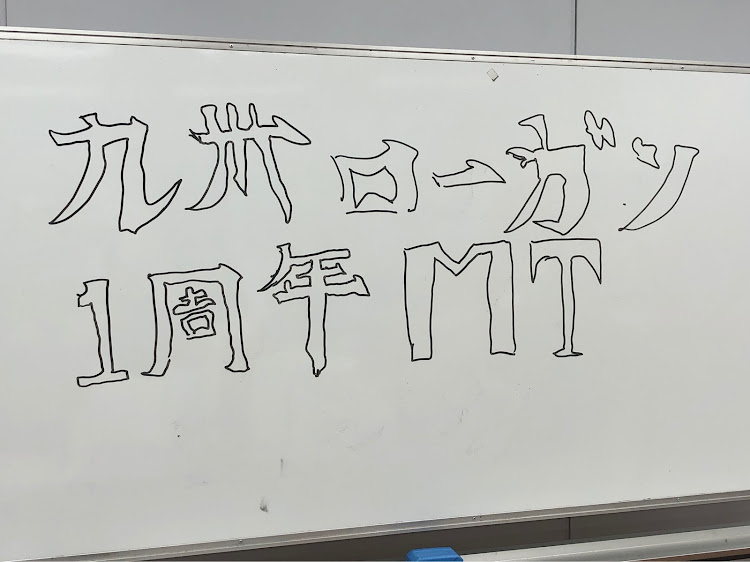 九州ローガン
1周年MT